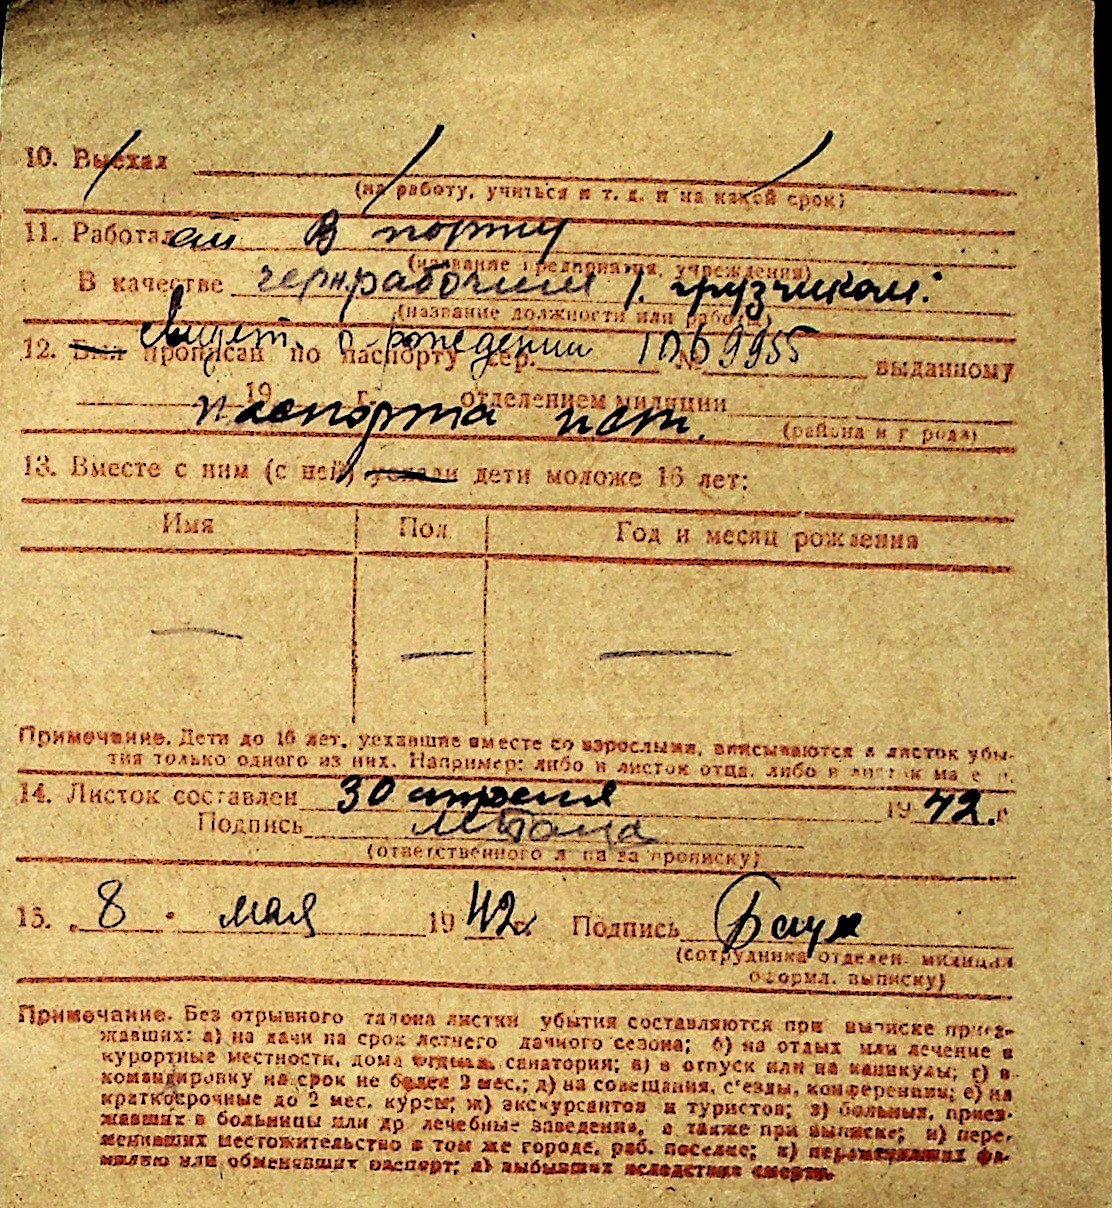 10. Выехал
(на работу, учиться и т. д. и на какой срок)
11. Работал ст в порту
(название предприятия, учреждения)
В качестве чернрабочим /. грузчиком.
(название должности или работы)
Свидет. о рождении
12. Был прописан по паспорту сер. № 9955 выданному
19 г. отделением милиции
паспорта нет.
(района и города)
13. Вместе с ним (с ней) уехали дети моложе 16 лет:
Имя Пол Год и месяц рождения
— — —
Примечание. Дети до 16 лет, уехавшие вместе со взрослыми, вписываются в листок убы-
тия только одного из них. Например: либо в листок отца, либо в листок матери.
14. Листок составлен 30 апреля 1942. г
Подпись
(ответственного лица за прописку)
15. 8 " мая 1942 г. Подпись
(сотрудника отделен. милиции
оформл. выписку)
Примечание. Без отрывного талона листки убытия составляются при выписке приез-
жавших: а) на дачи на срок летнего дачного сезона; б) на отдых или лечение в
курортные местности, дома отдыха, санатории; в) в отпуск или на каникулы; г) в
командировку на срок не более 2 мес.; д) на совещания, съезды, конференции; е) на
краткосрочные до 2 мес. курсы; ж) экскурсантов и туристов; з) больных, приез-
жавших в больницы или др лечебные заведения, а также при выписке; и) пере-
менивших местожительство в том же городе, раб. поселке; к) переменивших фа-
милию или обменявших паспорт; л) выбывших вследствие смерти.